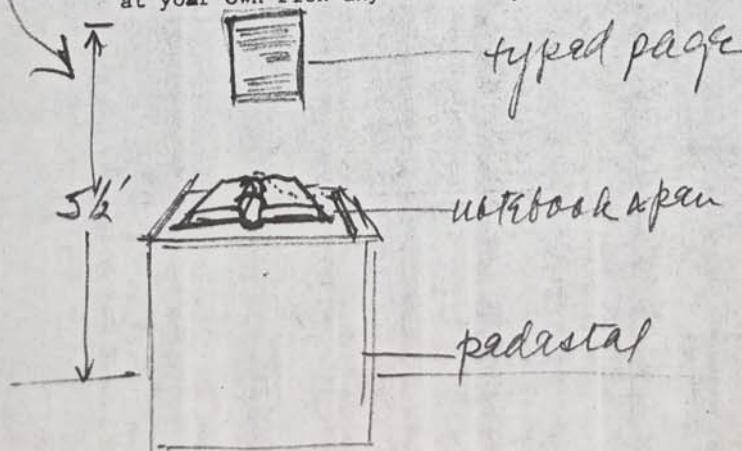 at your own risk any
typed page
5½'
notebook & pen
padastal